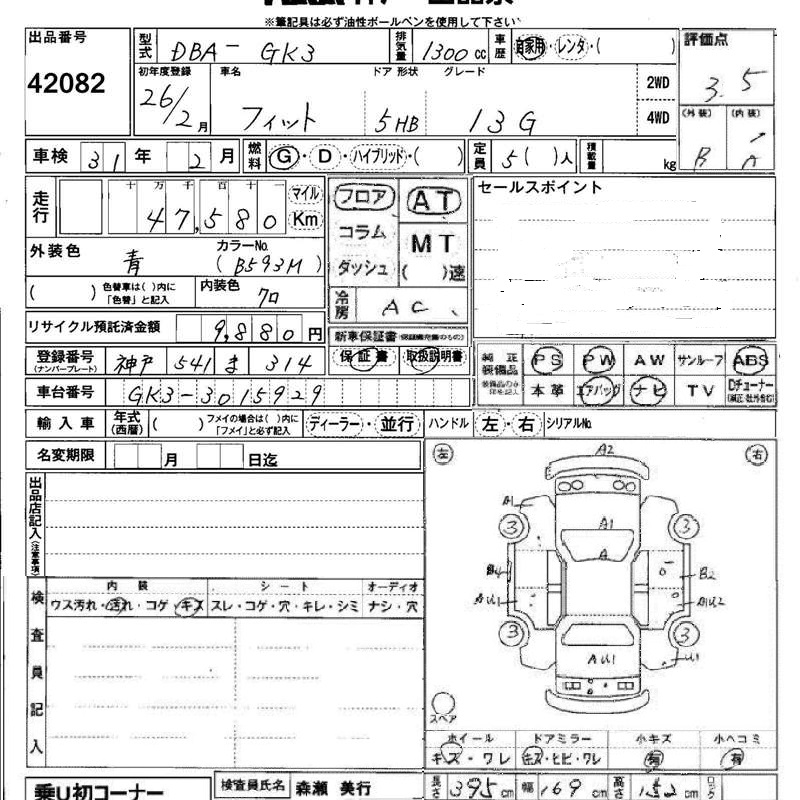 ※筆記具は必ず油性ボールペンを使用して下さい
出品番号 型式 DBA-GK3 排気量 1300cc 車歴 自家用・レンタ・( ) 評価点
42082 3.5
初年度登録 車名 ドア 形状 グレード 2WD
26/2月 フィット 5HB 13G 4WD
(外装) (内装)
B A
車検 31年 2月 燃料 G・D・ハイブリッド・( ) 定員 5( )人 積載量 kg
走行 十万千百十一 マイル フロア AT セールスポイント
47,580 Km コラム MT
外装色 青 カラーNo. (B593M) ダッシュ ( )速
( ) 色替車は( )内に「色替」と記入 内装色 クロ 冷房 AC
リサイクル預託済金額 9,880円 新車保証書
登録番号 (ナンバープレート) 神戸 541 ま 314 保証書 取扱説明書 純正装備品 PS PW AW サンルーフ ABS
車台番号 GK3-3015929 本革 エアバッグ ナビ TV Dチューナー
輸入車 年式(西暦) ( ) フメイの場合は( )内に「フメイ」と必ず記入 ディーラー・並行 ハンドル 左・右 シリアルNo.
名変期限 月 日迄 左 右
出品店記入(注意事項)
A2
A1 A1
3 3
A
B4 B2
AU1 AU2
3 3
AU1 U1
検査員記入 内装 シート オーディオ
ウス汚れ・汚れ・コゲ・キズ スレ・コゲ・穴・キレ・シミ ナシ・穴
スペア
ホイール ドアミラー 小キズ 小ヘコミ
キズ・ワレ キズ・ヒビ・ワレ 有 有
乗U初コーナー 検査員氏名 森瀬 美行 長さ 395cm 幅 169cm 高さ 152cm